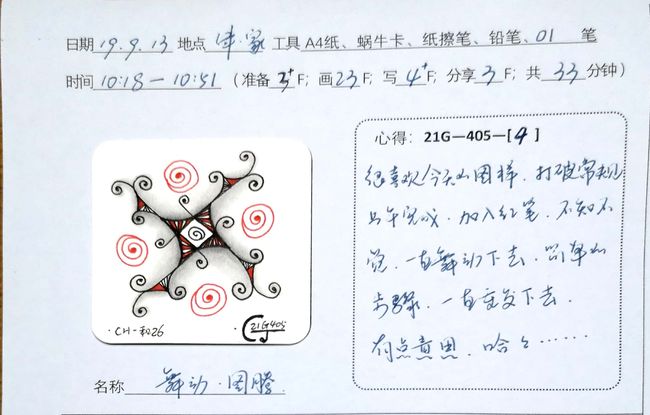 日期 19.9.13 地点 津.家 工具 A4纸、蜗牛卡、纸擦笔、铅笔、01 笔
时间 10:18—10:51 （准备 3⁺F；画 23F；写 4⁺F；分享 3F；共 33 分钟）
心得：21G—405—[4]
很喜欢今天的图样．打破常规
上午完成．加入红笔．不知不
觉．一直舞动下去．简单的
步骤．一直变发下去．
有点意思．哈々……
·CH-和26
21G405
名称 舞动·图腾.